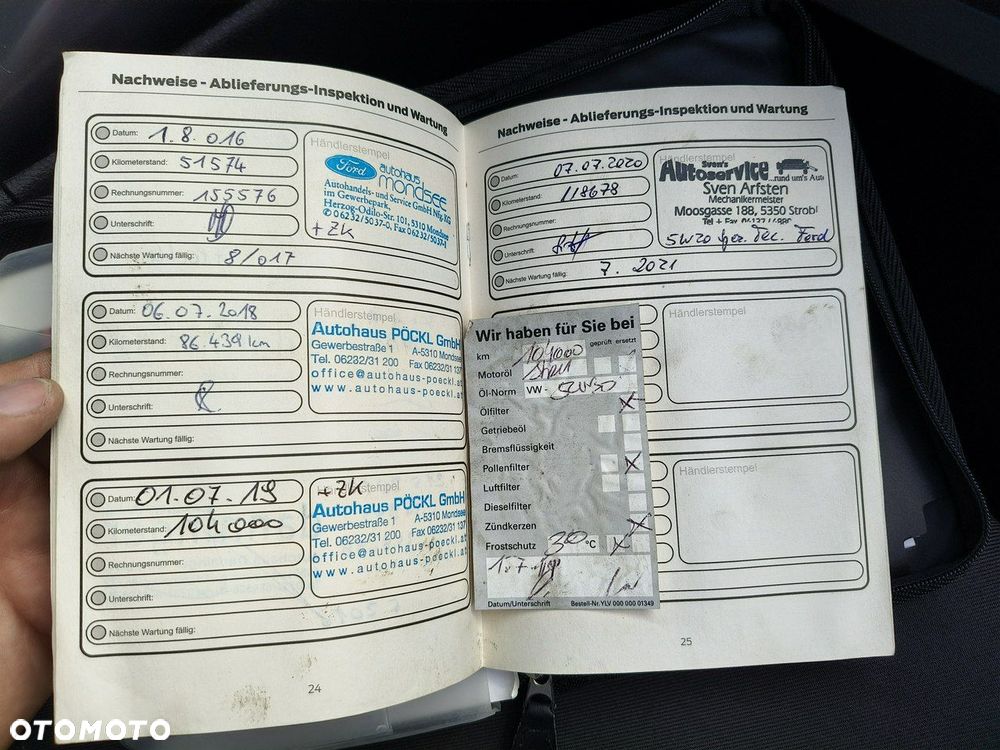 Nachweise - Ablieferungs-Inspektion und Wartung
Datum: 1.8.016
Kilometerstand: 51574
Rechnungsnummer: 155576
Unterschrift:
Nächste Wartung fällig: 8/017
Händlerstempel
Ford autohaus
mondsee
Autohandels- und Service GmbH Nfg. KG
im Gewerbepark,
Herzog-Odilo-Str. 101, 5310 Mondsee
✆ 06232/5037-0, Fax 06232/5037-
+ ZK
Datum: 06.07.2018
Kilometerstand: 86.439 km
Rechnungsnummer:
Unterschrift:
Nächste Wartung fällig:
Händlerstempel
Autohaus PÖCKL GmbH
Gewerbestraße 1 A-5310 Mondsee
Tel. 06232/31 200 Fax 06232/31 137
office@autohaus-poeckl.at
www.autohaus-poeckl.at
Datum: 01.07.19
Kilometerstand: 104000
Rechnungsnummer:
Unterschrift:
Nächste Wartung fällig:
+ ZK
Händlerstempel
Autohaus PÖCKL GmbH
Gewerbestraße 1 A-5310 Mondsee
Tel. 06232/31 200 Fax 06232/31 137
office@autohaus-poeckl.at
www.autohaus-poeckl.at
24
Nachweise - Ablieferungs-Inspektion und Wartung
Datum: 07.07.2020
Kilometerstand: 118678
Rechnungsnummer:
Unterschrift:
Nächste Wartung fällig: 7.2021
Händlerstempel
Sven's
Autoservice
...rund um's Auto
Sven Arfsten
Mechanikermeister
Moosgasse 188, 5350 Strobl
Tel + Fax
5W20 Ford
Händlerstempel
Händlerstempel
Wir haben für Sie bei
km 104000 geprüft ersetzt
Motoröl
Öl-Norm VW - 5W30
Ölfilter X
Getriebeöl
Bremsflüssigkeit
Pollenfilter X
Luftfilter
Dieselfilter
Zündkerzen X
Frostschutz 30 °C X
Datum/Unterschrift Bestell-Nr. YLV 000 000 01349
25
OTOMOTO